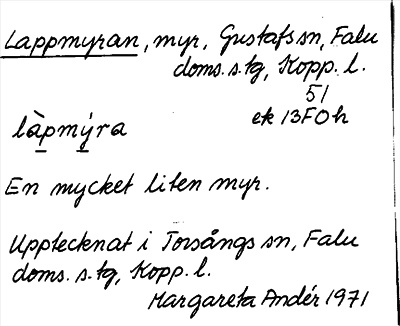 Lappmyran, myr, Gustafs sn, Falu
doms. s. tg, Kopp. l.
51
ek 13FOh
làpmýra
En mycket liten myr.
Upptecknat i Torsångs sn, Falu
doms. s. tg, Kopp. l.
Margareta Andér 1971